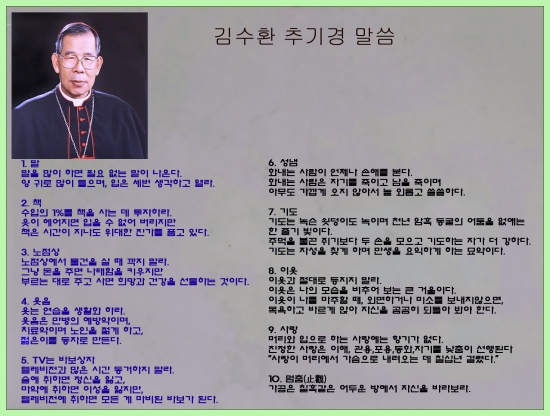 김수환 추기경 말씀
1. 말
말을 많이 하면 필요 없는 말이 나온다.
양 귀로 많이 들으며, 입은 세번 생각하고 열라.
2. 책
수입의 1%를 책을 사는 데 투자하라.
옷이 헤어지면 입을 수 없어 버리지만
책은 시간이 지나도 위대한 진가를 품고 있다.
3. 노점상
노점상에서 물건을 살 때 깍지 말라.
그냥 돈을 주면 나태함을 키우지만
부르는 대로 주고 사면 희망과 건강을 선물하는 것이다.
4. 웃음
웃는 연습을 생활화 하라.
웃음은 만병의 예방약이며,
치료약이며 노인을 젊게 하고,
젊은이를 동자로 만든다.
5. TV는 바보상자
텔레비전과 많은 시간 동거하지 말라.
술에 취하면 정신을 잃고,
마약에 취하면 이성을 잃지만,
텔레비전에 취하면 모든 게 마비된 바보가 된다.
6. 성냄
화내는 사람이 언제나 손해를 본다.
화내는 사람은 자기를 죽이고 남을 죽이며
아무도 가깝게 오지 않아서 늘 외롭고 쓸쓸하다.
7. 기도
기도는 녹슨 쇳덩이도 녹이며 천년 암흑 동굴의 어둠을 없애는
한 줄기 빛이다.
주먹을 불끈 쥐기보다 두 손을 모으고 기도하는 자가 더 강하다.
기도는 자성을 찾게 하며 만생을 요익하게 하는 묘약이다.
8. 이웃
이웃과 절대로 등지지 말라.
이웃은 나의 모습을 비추어 보는 큰 거울이다.
이웃이 나를 마주할 때, 외면하거나 미소를 보내지않으면,
목욕하고 바르게 앉아 자신을 곰곰히 되돌아 봐야 한다.
9. 사랑
머리와 입으로 하는 사랑에는 향기가 없다.
진정한 사랑은 이해, 관용,포용,동화,자기를 낮춤이 선행된다
"사랑이 머리에서 가슴으로 내려오는 데 칠십년 걸렸다."
10. 멈춤(止觀)
가끔은 칠흑같은 어두운 방에서 자신을 바라보라.